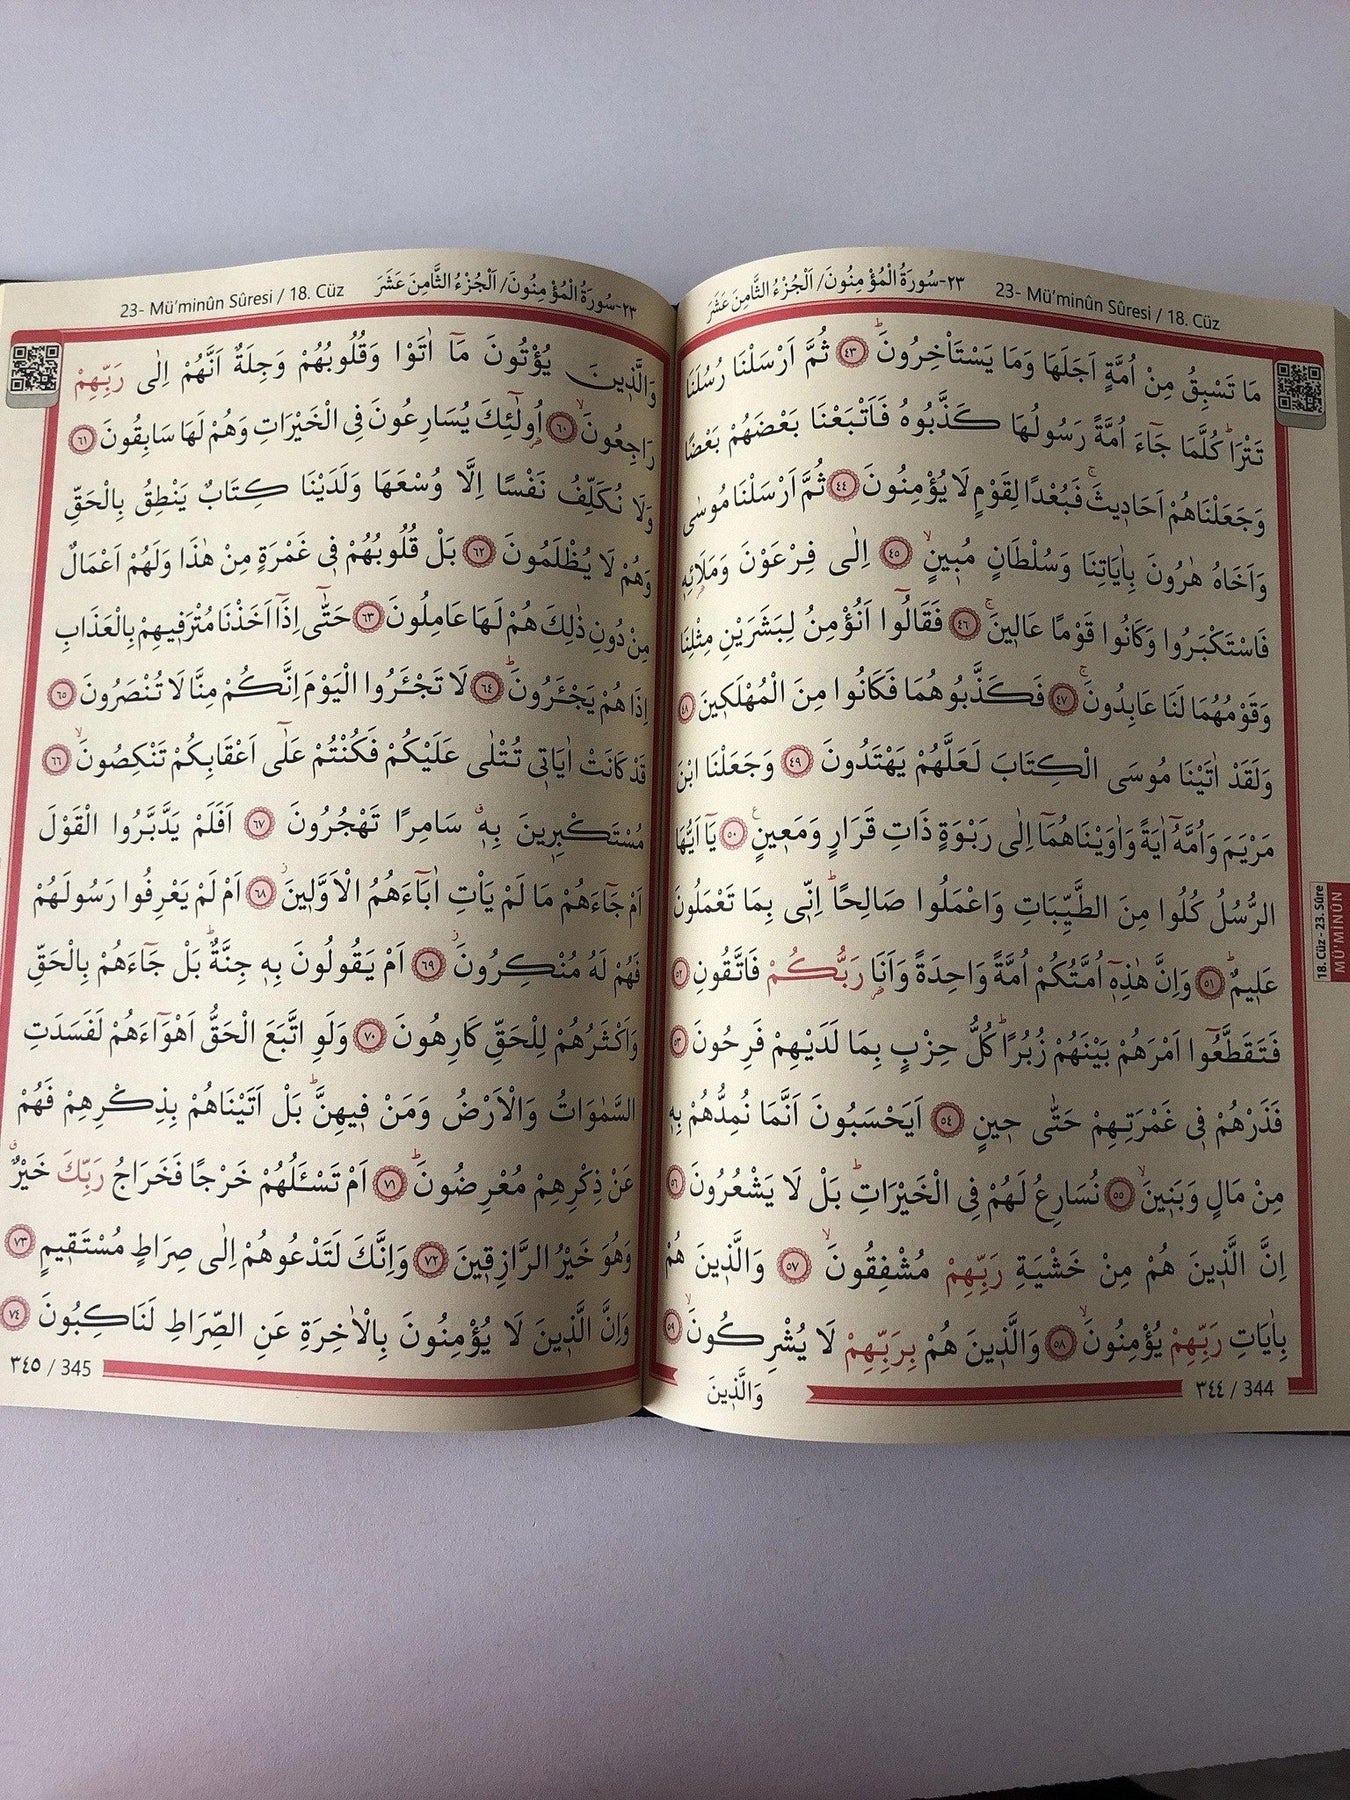 23- Mü'minûn Sûresi / 18. Cüz
٢٣-سُورَةُ الْمُؤْمِنُونَ/ اَلْجُزْءُ الثَّامِنَ عَشَرَ
مَا تَسْبِقُ مِنْ اُمَّةٍ اَجَلَهَا وَمَا يَسْتَأْخِرُونَۜ ٤٣ ثُمَّ اَرْسَلْنَا رُسُلَنَا
تَتْرَاۜ كُلَّمَا جَٓاءَ اُمَّةً رَسُولُهَا كَذَّبُوهُ فَاَتْبَعْنَا بَعْضَهُمْ بَعْضًا
وَجَعَلْنَاهُمْ اَحَاد۪يثَۚ فَبُعْدًا لِقَوْمٍ لَا يُؤْمِنُونَ ٤٤ ثُمَّ اَرْسَلْنَا مُوسٰى
وَاَخَاهُ هٰرُونَ بِاٰيَاتِنَا وَسُلْطَانٍ مُب۪ينٍۙ ٤٥ اِلٰى فِرْعَوْنَ وَمَلَا۬ئِه۪
فَاسْتَكْبَرُوا وَكَانُوا قَوْمًا عَال۪ينَۚ ٤٦ فَقَالُٓوا اَنُؤْمِنُ لِبَشَرَيْنِ مِثْلِنَا
وَقَوْمُهُمَا لَنَا عَابِدُونَۚ ٤٧ فَكَذَّبُوهُمَا فَكَانُوا مِنَ الْمُهْلَك۪ينَ ٤٨
وَلَقَدْ اٰتَيْنَا مُوسَى الْكِتَابَ لَعَلَّهُمْ يَهْتَدُونَ ٤٩ وَجَعَلْنَا ابْنَ
مَرْيَمَ وَاُمَّهُٓ اٰيَةً وَاٰوَيْنَاهُمَٓا اِلٰى رَبْوَةٍ ذَاتِ قَرَارٍ وَمَع۪ينٍ۟ ٥٠ يَٓا اَيُّهَا
الرُّسُلُ كُلُوا مِنَ الطَّيِّبَاتِ وَاعْمَلُوا صَالِحًاۜ اِنّ۪ي بِمَا تَعْمَلُونَ
عَل۪يمٌۜ ٥١ وَاِنَّ هٰذِه۪ٓ اُمَّتُكُمْ اُمَّةً وَاحِدَةً وَاَنَا۬ رَبُّكُمْ فَاتَّقُونِ ٥٢
فَتَقَطَّعُٓوا اَمْرَهُمْ بَيْنَهُمْ زُبُرًاۜ كُلُّ حِزْبٍ بِمَا لَدَيْهِمْ فَرِحُونَ ٥٣
فَذَرْهُمْ ف۪ي غَمْرَتِهِمْ حَتّٰى ح۪ينٍ ٥٤ اَيَحْسَبُونَ اَنَّمَا نُمِدُّهُمْ بِه۪
مِنْ مَالٍ وَبَن۪ينَۙ ٥٥ نُسَارِعُ لَهُمْ فِي الْخَيْرَاتِۜ بَلْ لَا يَشْعُرُونَ ٥٦
اِنَّ الَّذ۪ينَ هُمْ مِنْ خَشْيَةِ رَبِّهِمْ مُشْفِقُونَۙ ٥٧ وَالَّذ۪ينَ هُمْ
بِاٰيَاتِ رَبِّهِمْ يُؤْمِنُونَۙ ٥٨ وَالَّذ۪ينَ هُمْ بِرَبِّهِمْ لَا يُشْرِكُونَۙ ٥٩
٣٤٤ / 344
وَالَّذ۪ينَ
18. Cüz - 23. Sûre
MÜ'MİNÛN
23- Mü'minûn Sûresi / 18. Cüz
٢٣-سُورَةُ الْمُؤْمِنُونَ/ اَلْجُزْءُ الثَّامِنَ عَشَرَ
وَالَّذ۪ينَ يُؤْتُونَ مَٓا اٰتَوْا وَقُلُوبُهُمْ وَجِلَةٌ اَنَّهُمْ اِلٰى رَبِّهِمْ
رَاجِعُونَۙ ٦٠ اُو۬لٰٓئِكَ يُسَارِعُونَ فِي الْخَيْرَاتِ وَهُمْ لَهَا سَابِقُونَ ٦١
وَلَا نُكَلِّفُ نَفْسًا اِلَّا وُسْعَهَا وَلَدَيْنَا كِتَابٌ يَنْطِقُ بِالْحَقِّ
وَهُمْ لَا يُظْلَمُونَ ٦٢ بَلْ قُلُوبُهُمْ ف۪ي غَمْرَةٍ مِنْ هٰذَا وَلَهُمْ اَعْمَالٌ
مِنْ دُونِ ذٰلِكَ هُمْ لَهَا عَامِلُونَ ٦٣ حَتّٰٓى اِذَٓا اَخَذْنَا مُتْرَف۪يهِمْ بِالْعَذَابِ
اِذَا هُمْ يَجْـَٔرُونَۜ ٦٤ لَا تَجْـَٔرُوا الْيَوْمَ اِنَّكُمْ مِنَّا لَا تُنْصَرُونَ ٦٥
قَدْ كَانَتْ اٰيَات۪ي تُتْلٰى عَلَيْكُمْ فَكُنْتُمْ عَلٰٓى اَعْقَابِكُمْ تَنْكِصُونَۙ ٦٦
مُسْتَكْبِر۪ينَ بِه۪ۗ سَامِرًا تَهْجُرُونَ ٦٧ اَفَلَمْ يَدَّبَّرُوا الْقَوْلَ
اَمْ جَٓاءَهُمْ مَا لَمْ يَأْتِ اٰبَٓاءَهُمُ الْاَوَّل۪ينَۘ ٦٨ اَمْ لَمْ يَعْرِفُوا رَسُولَهُمْ
فَهُمْ لَهُ مُنْكِرُونَۘ ٦٩ اَمْ يَقُولُونَ بِه۪ جِنَّةٌۜ بَلْ جَٓاءَهُمْ بِالْحَقِّ
وَاَكْثَرُهُمْ لِلْحَقِّ كَارِهُونَ ٧٠ وَلَوِ اتَّبَعَ الْحَقُّ اَهْوَٓاءَهُمْ لَفَسَدَتِ
السَّمٰوَاتُ وَالْاَرْضُ وَمَنْ ف۪يهِنَّۜ بَلْ اَتَيْنَاهُمْ بِذِكْرِهِمْ فَهُمْ
عَنْ ذِكْرِهِمْ مُعْرِضُونَۜ ٧١ اَمْ تَسْـَٔلُهُمْ خَرْجًا فَخَرَاجُ رَبِّكَ خَيْرٌۗ
وَهُوَ خَيْرُ الرَّازِق۪ينَ ٧٢ وَاِنَّكَ لَتَدْعُوهُمْ اِلٰى صِرَاطٍ مُسْتَق۪يمٍ ٧٣
وَاِنَّ الَّذ۪ينَ لَا يُؤْمِنُونَ بِالْاٰخِرَةِ عَنِ الصِّرَاطِ لَنَاكِبُونَ ٧٤
٣٤٥ / 345